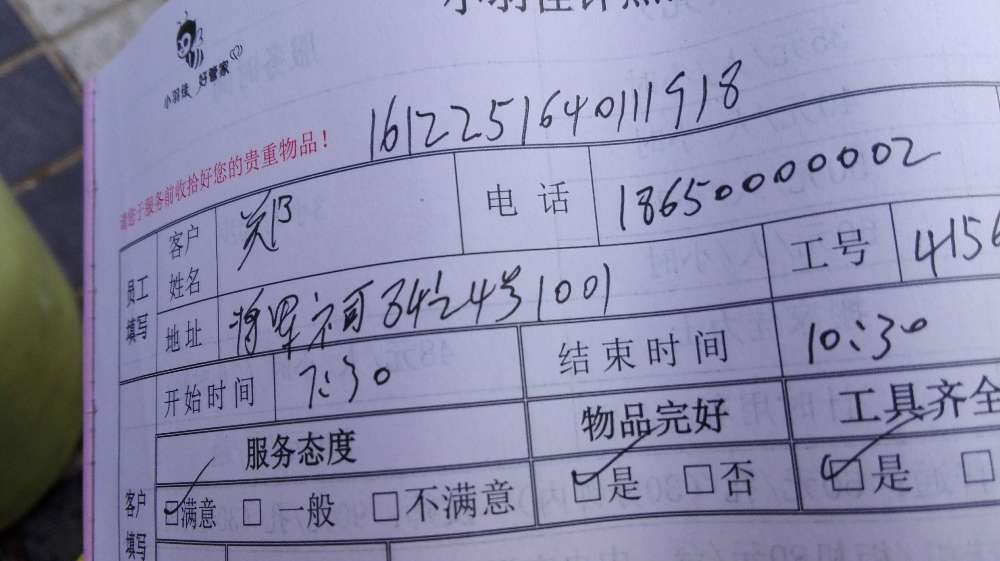 小羽佳 好管家
请您于服务前收拾好您的贵重物品！
1612251640111918
员工填写
客户姓名 郑 电话 18650000002
地址 将军祠 84之4号1001 工号 4156
开始时间 7:30 结束时间 10:30
服务态度 物品完好 工具齐全
客户填写
☑满意 □一般 □不满意 ☑是 □否 ☑是 □